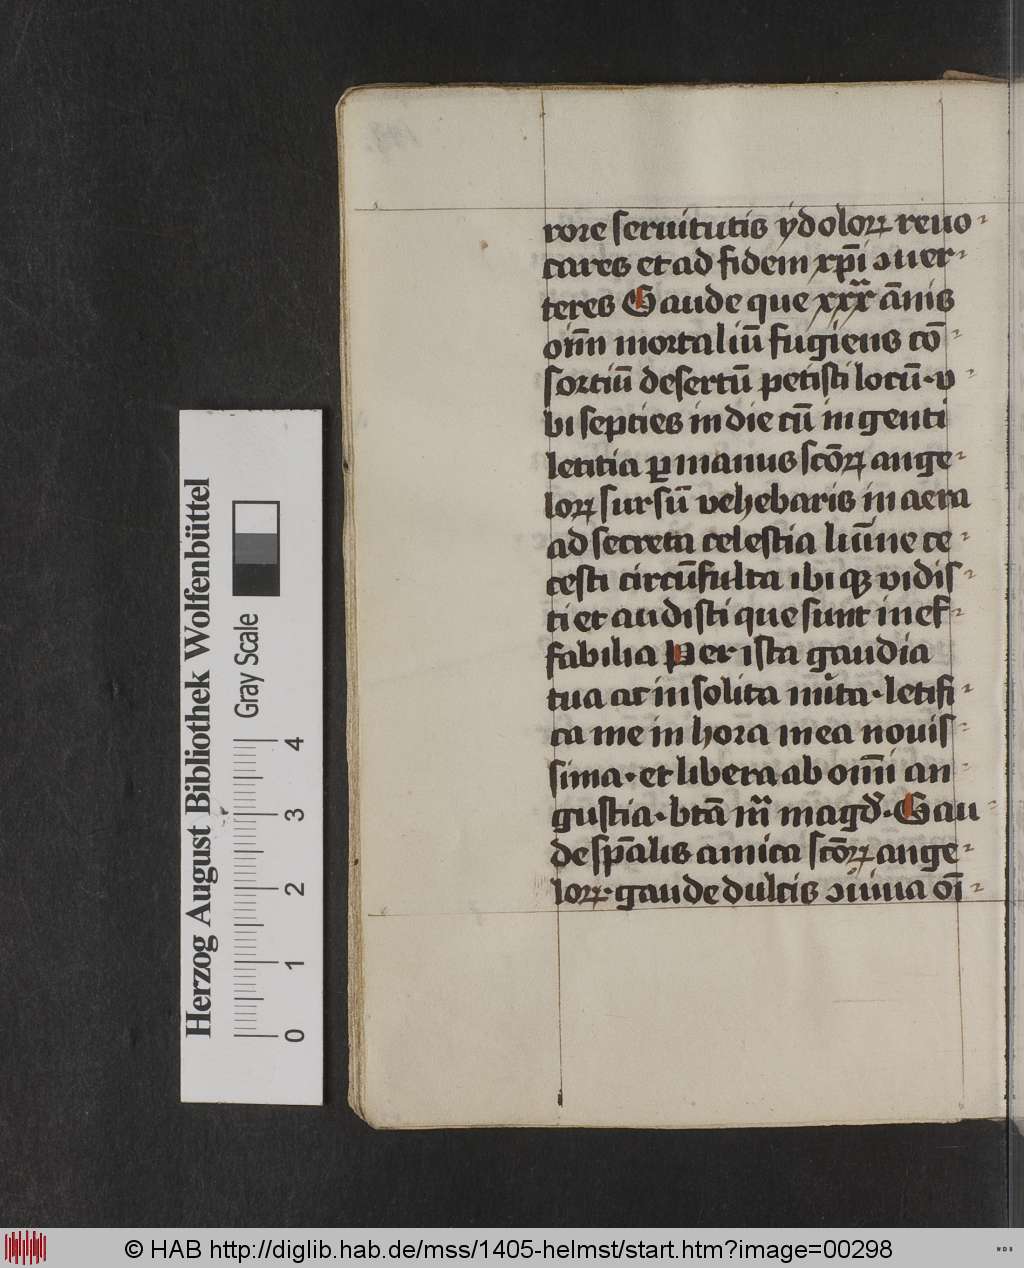 rore seruitutis ydoloꝝ reuo-
cares et ad fidem xp̄i ꝯuer-
teres Gaude que xxx ān̄is
oīm mortaliū fugiens cō-
sortiū desertū petisti locū·v-
bi septies in die cū ingenti
letitia ꝑ manus scōꝝ ange-
loꝝ sursū vehebaris in aera
ad secreta celestia lumīe ce-
cesti circūfulta ibi qꝫ vidis-
ti et audisti que sunt inef-
fabilia Per ista gaudia
tua ac insolita mīta·letifi-
ca me in hora mea nouis-
sima·et libera ab omī an-
gustia·btā magd·Gau-
de sp̄alis amica scōꝝ ange-
loꝝ·gaude dulcis ꝯuiua oī-
Herzog August Bibliothek Wolfenbüttel
Gray Scale
0 1 2 3 4
© HAB http://diglib.hab.de/mss/1405-helmst/start.htm?image=00298